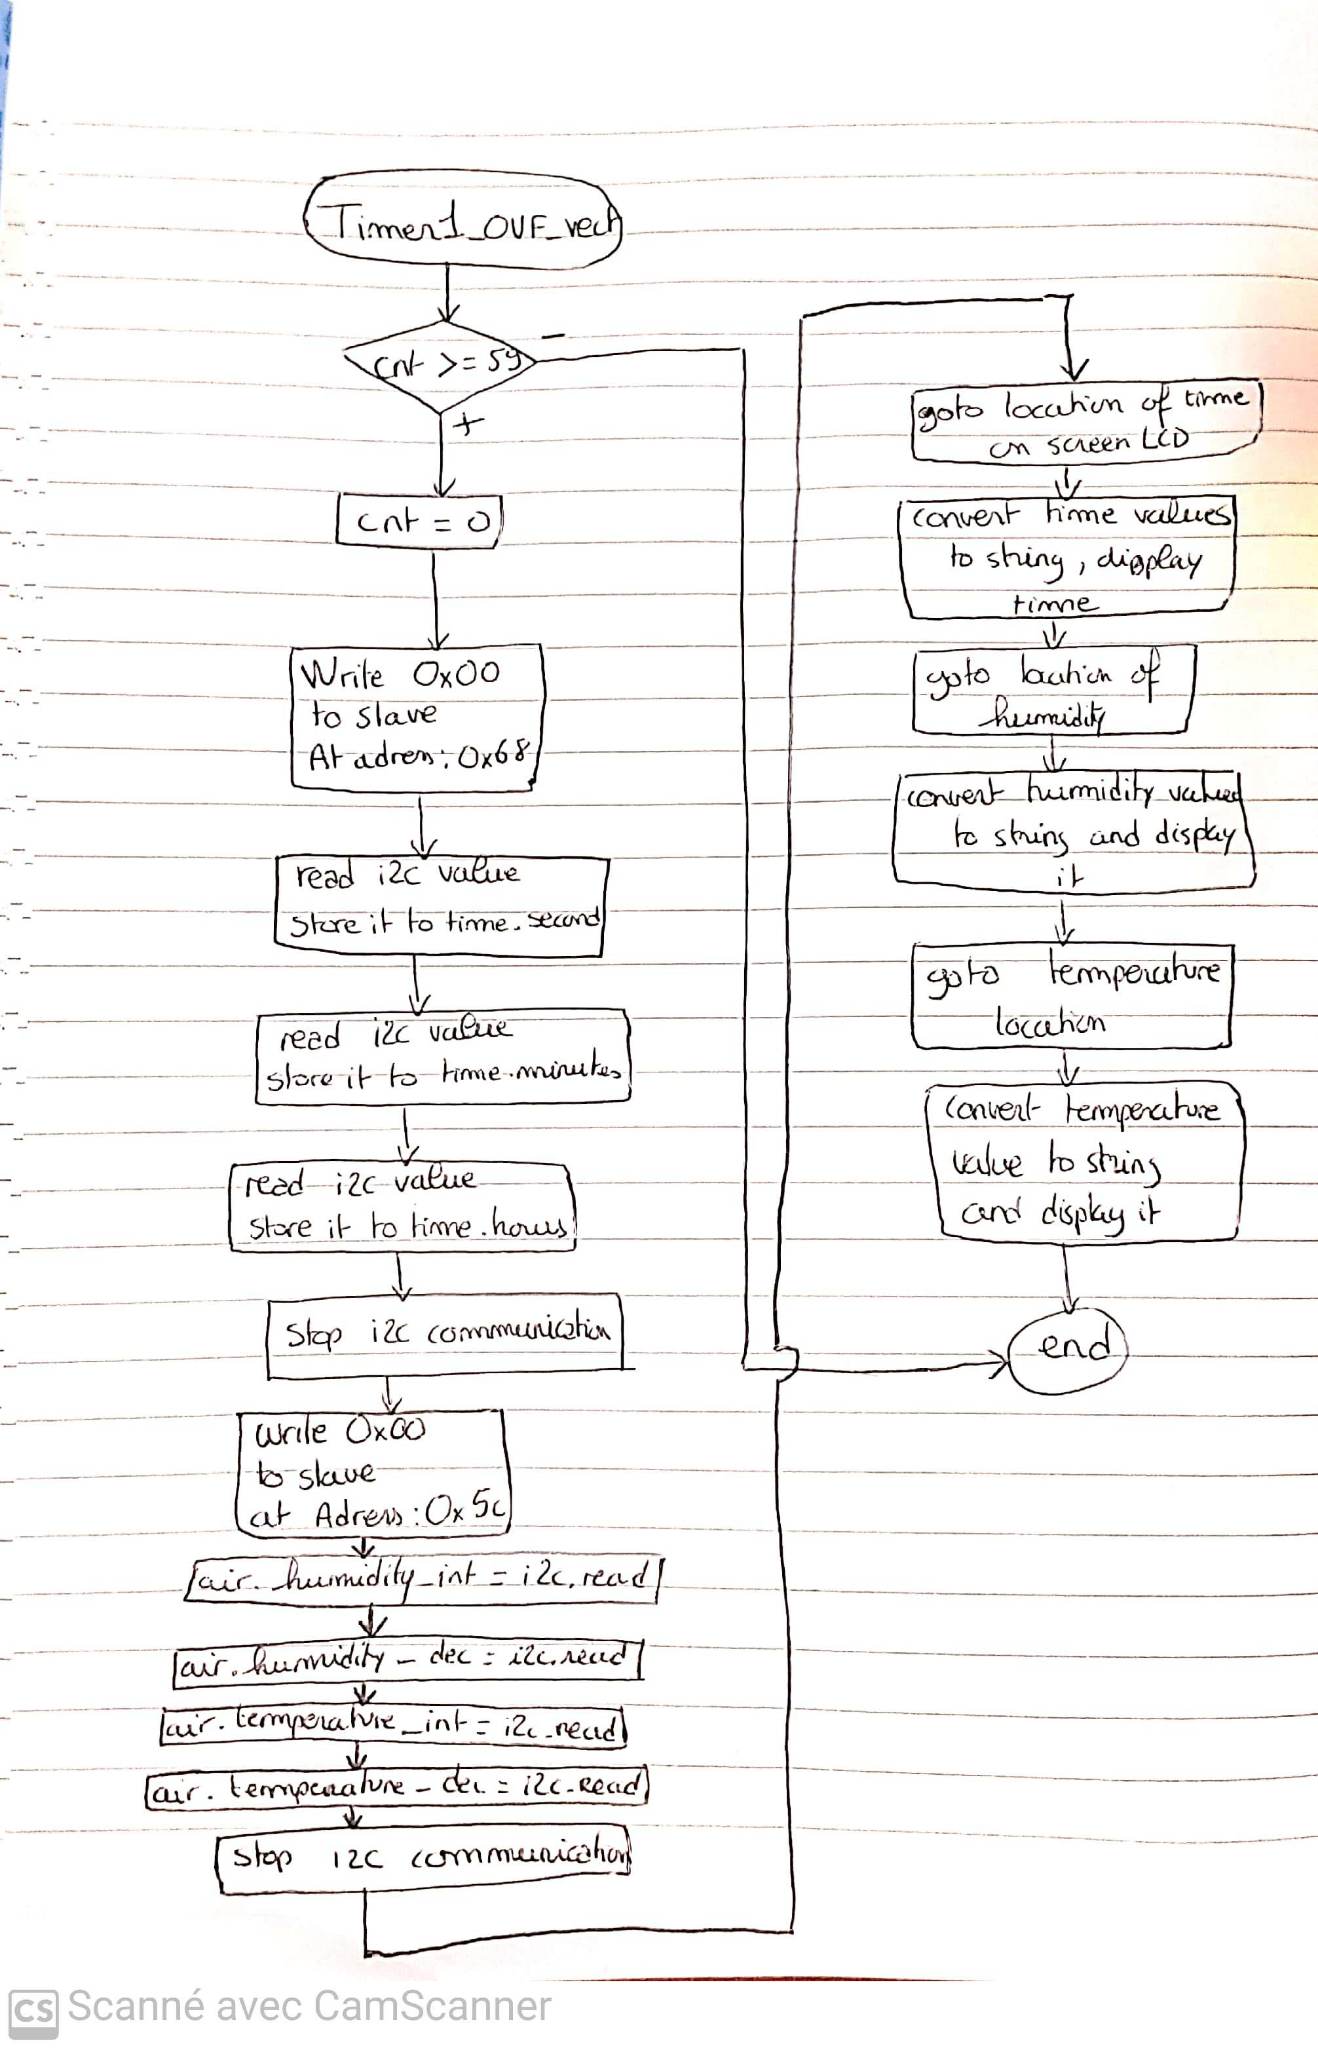 Timer1_OVF_vect
cnt >= 59
-
+
cnt = 0
Write 0x00
to slave
At adress: 0x68
read i2c value
store it to time.second
read i2c value
store it to time.minutes
read i2c value
store it to time.hours
Stop i2c communication
write 0x00
to slave
at Adress: 0x5c
air.humidity_int = i2c.read
air.humidity_dec = i2c.read
air.temperature_int = i2c.read
air.temperature_dec = i2c.Read
stop i2c communication
goto location of time
on screen LCD
convert time values
to string, display
time
goto location of
humidity
convert humidity valued
to string and display
it
goto temperature
location
convert temperature
value to string
and display it
end
CS Scanné avec CamScanner